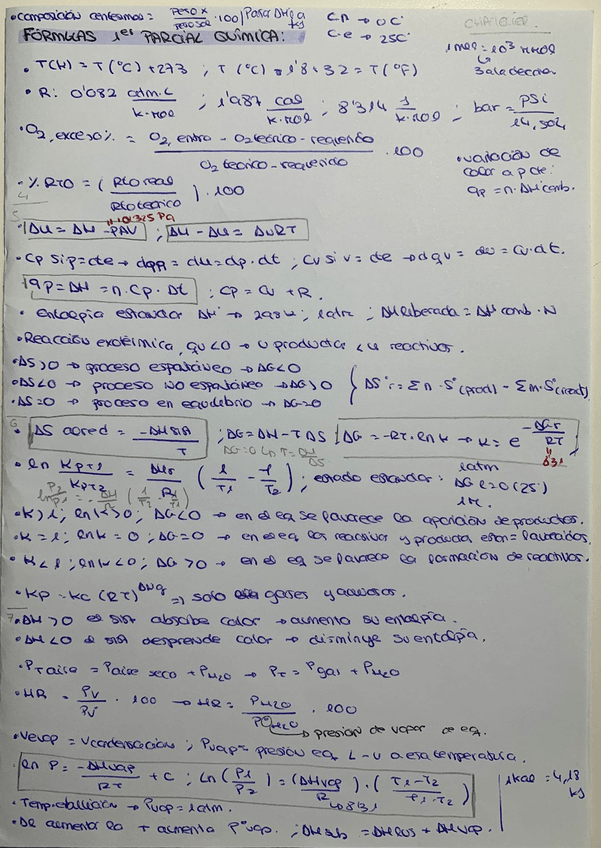 • composición centesimal = peso x / peso sol · 100 | Pasar ΔH a kJ
Cn → 0C
Ce → 25C
CHATELIER
FÓRMULAS 1er PARCIAL QUÍMICA:
1 mol = 10³ mmol
• T(K) = T(°C) + 273 ; T(°C) · 1'8 + 32 = T(°F)
• R: 0'082 atm·L / K·mol ; 1'987 cal / K·mol ; 8'314 J / K·mol ; bar = PSi / 14,504
• O2, exceso % = O2, entro - O2 teórico-requerido / O2 teorico-requerido · 100
• variación de calor a p cte:
qp = n·ΔH comb.
• % RTO = ( Rto real / Rto teórico ) · 100
101325 Pa
ΔU = ΔH - PΔV ; ΔH - ΔU = ΔnRT
• Cp si p = cte → dqp = dH = cp · dt ; Cv si v = cte → dqv = du = Cv·dt.
qp = ΔH = n·Cp·Δt ; Cp = Cv + R.
• entalpia estandar ΔH° → 298K ; 1atm ; ΔH liberada = ΔH comb · N
• Reacción exotérmica, qv<0 → U productos < U reactivos.
• ΔS>0 → proceso espontáneo → ΔG<0
• ΔS<0 → proceso NO espontáneo → ΔG>0 { ΔS°r = Σn·S°(prod) - Σm·S°(react)
• ΔS=0 → proceso en equilibrio → ΔG=0
6
• ΔS alred = -ΔH sist / T ; ΔG = ΔH - TΔS | ΔG = -RT·lnK → K = e^(-ΔGr / RT)
ΔG=0 en T = ΔH / ΔS
8'31
• ln KpT1 / KpT2 = ΔHr / R ( 1/T1 - 1/T2 ) ; estado estandar: 1atm
ln P2/P1 = -ΔH/R ( 1/T2 - 1/T1 )
ΔG e=0 (25)
• K>1; lnK>0; ΔG<0 → en el eq se favorece la aparición de productos.
• K=1; lnK=0; ΔG=0 → en el eq los reactivos y productos están = favorecidos.
• K<1; lnK<0; ΔG>0 → en el eq se favorece la formación de reactivos.
• Kp = Kc (RT)^Δng => solo gases y acuosos.
7
• ΔH>0 el sist absorbe calor → aumento su entalpía.
• ΔH<0 el sist desprende calor → disminuye su entalpía.
• PT aire = P aire seco + PH2O → PT = P gas + PH2O
• HR = Pv / P°v · 100 → HR = PH2O / P°H2O · 100
→ presión de vapor de eq.
• Vevap = Vcondensación ; Pvap = presión eq L-V a esa temperatura.
ln P = -ΔHvap / RT + C ; Ln (P1 / P2) = (ΔHvap / R) · ( T1 - T2 / T1·T2 )
→ 8'31
1kcal = 4,18 kJ
• Temp. ebullición → Pvap = 1atm.
• Al aumentar la T aumenta P°vap. ; ΔH sub = ΔH fus + ΔH vap.